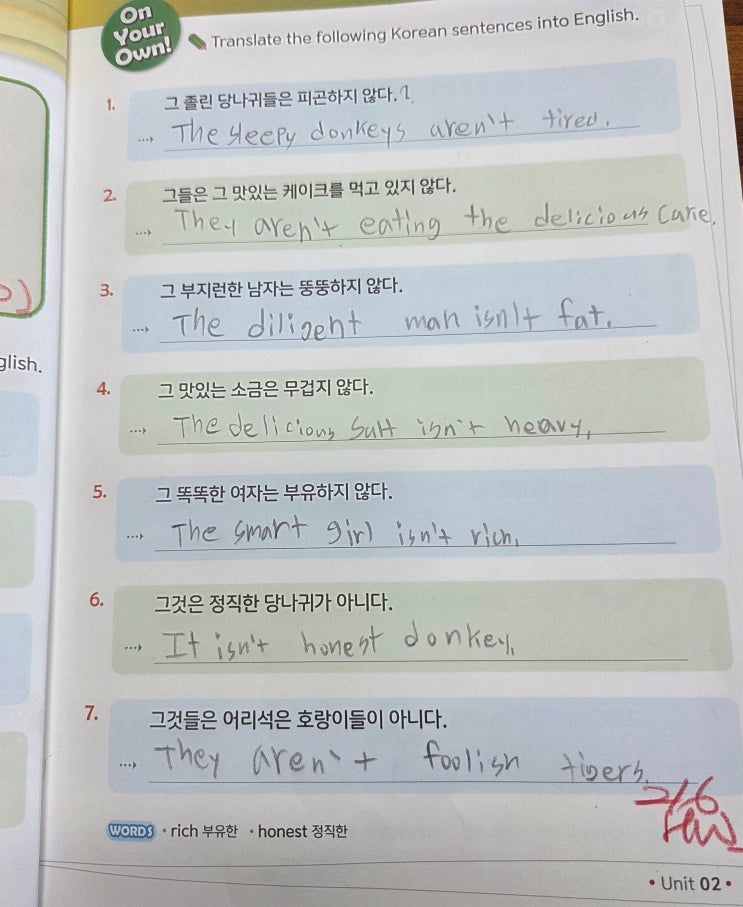 On
Your
Own!
Translate the following Korean sentences into English.
1. 그 졸린 당나귀들은 피곤하지 않다.
The sleepy donkeys aren't tired.
2. 그들은 그 맛있는 케이크를 먹고 있지 않다.
They aren't eating the delicious cake.
3. 그 부지런한 남자는 뚱뚱하지 않다.
The diligent man isn't fat.
glish.
4. 그 맛있는 소금은 무겁지 않다.
The delicious salt isn't heavy.
5. 그 똑똑한 여자는 부유하지 않다.
The smart girl isn't rich.
6. 그것은 정직한 당나귀가 아니다.
It isn't honest donkey.
7. 그것들은 어리석은 호랑이들이 아니다.
They aren't foolish tigers.
2/6
WORDS • rich 부유한 • honest 정직한
• Unit 02 •